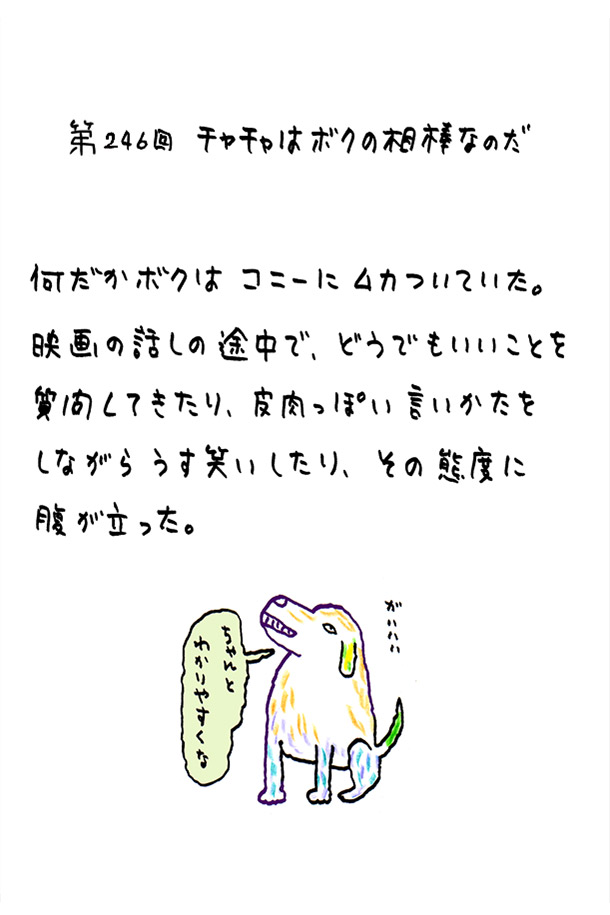 第246回 チャチャはボクの相棒なのだ
何だかボクは コニーにムカついていた。
映画の話しの途中で、どうでもいいことを
質問してきたり、皮肉っぽい言いかたを
しながらうす笑いしたり、その態度に
腹が立った。
がいいい
ちゃんと
わかりやすくな